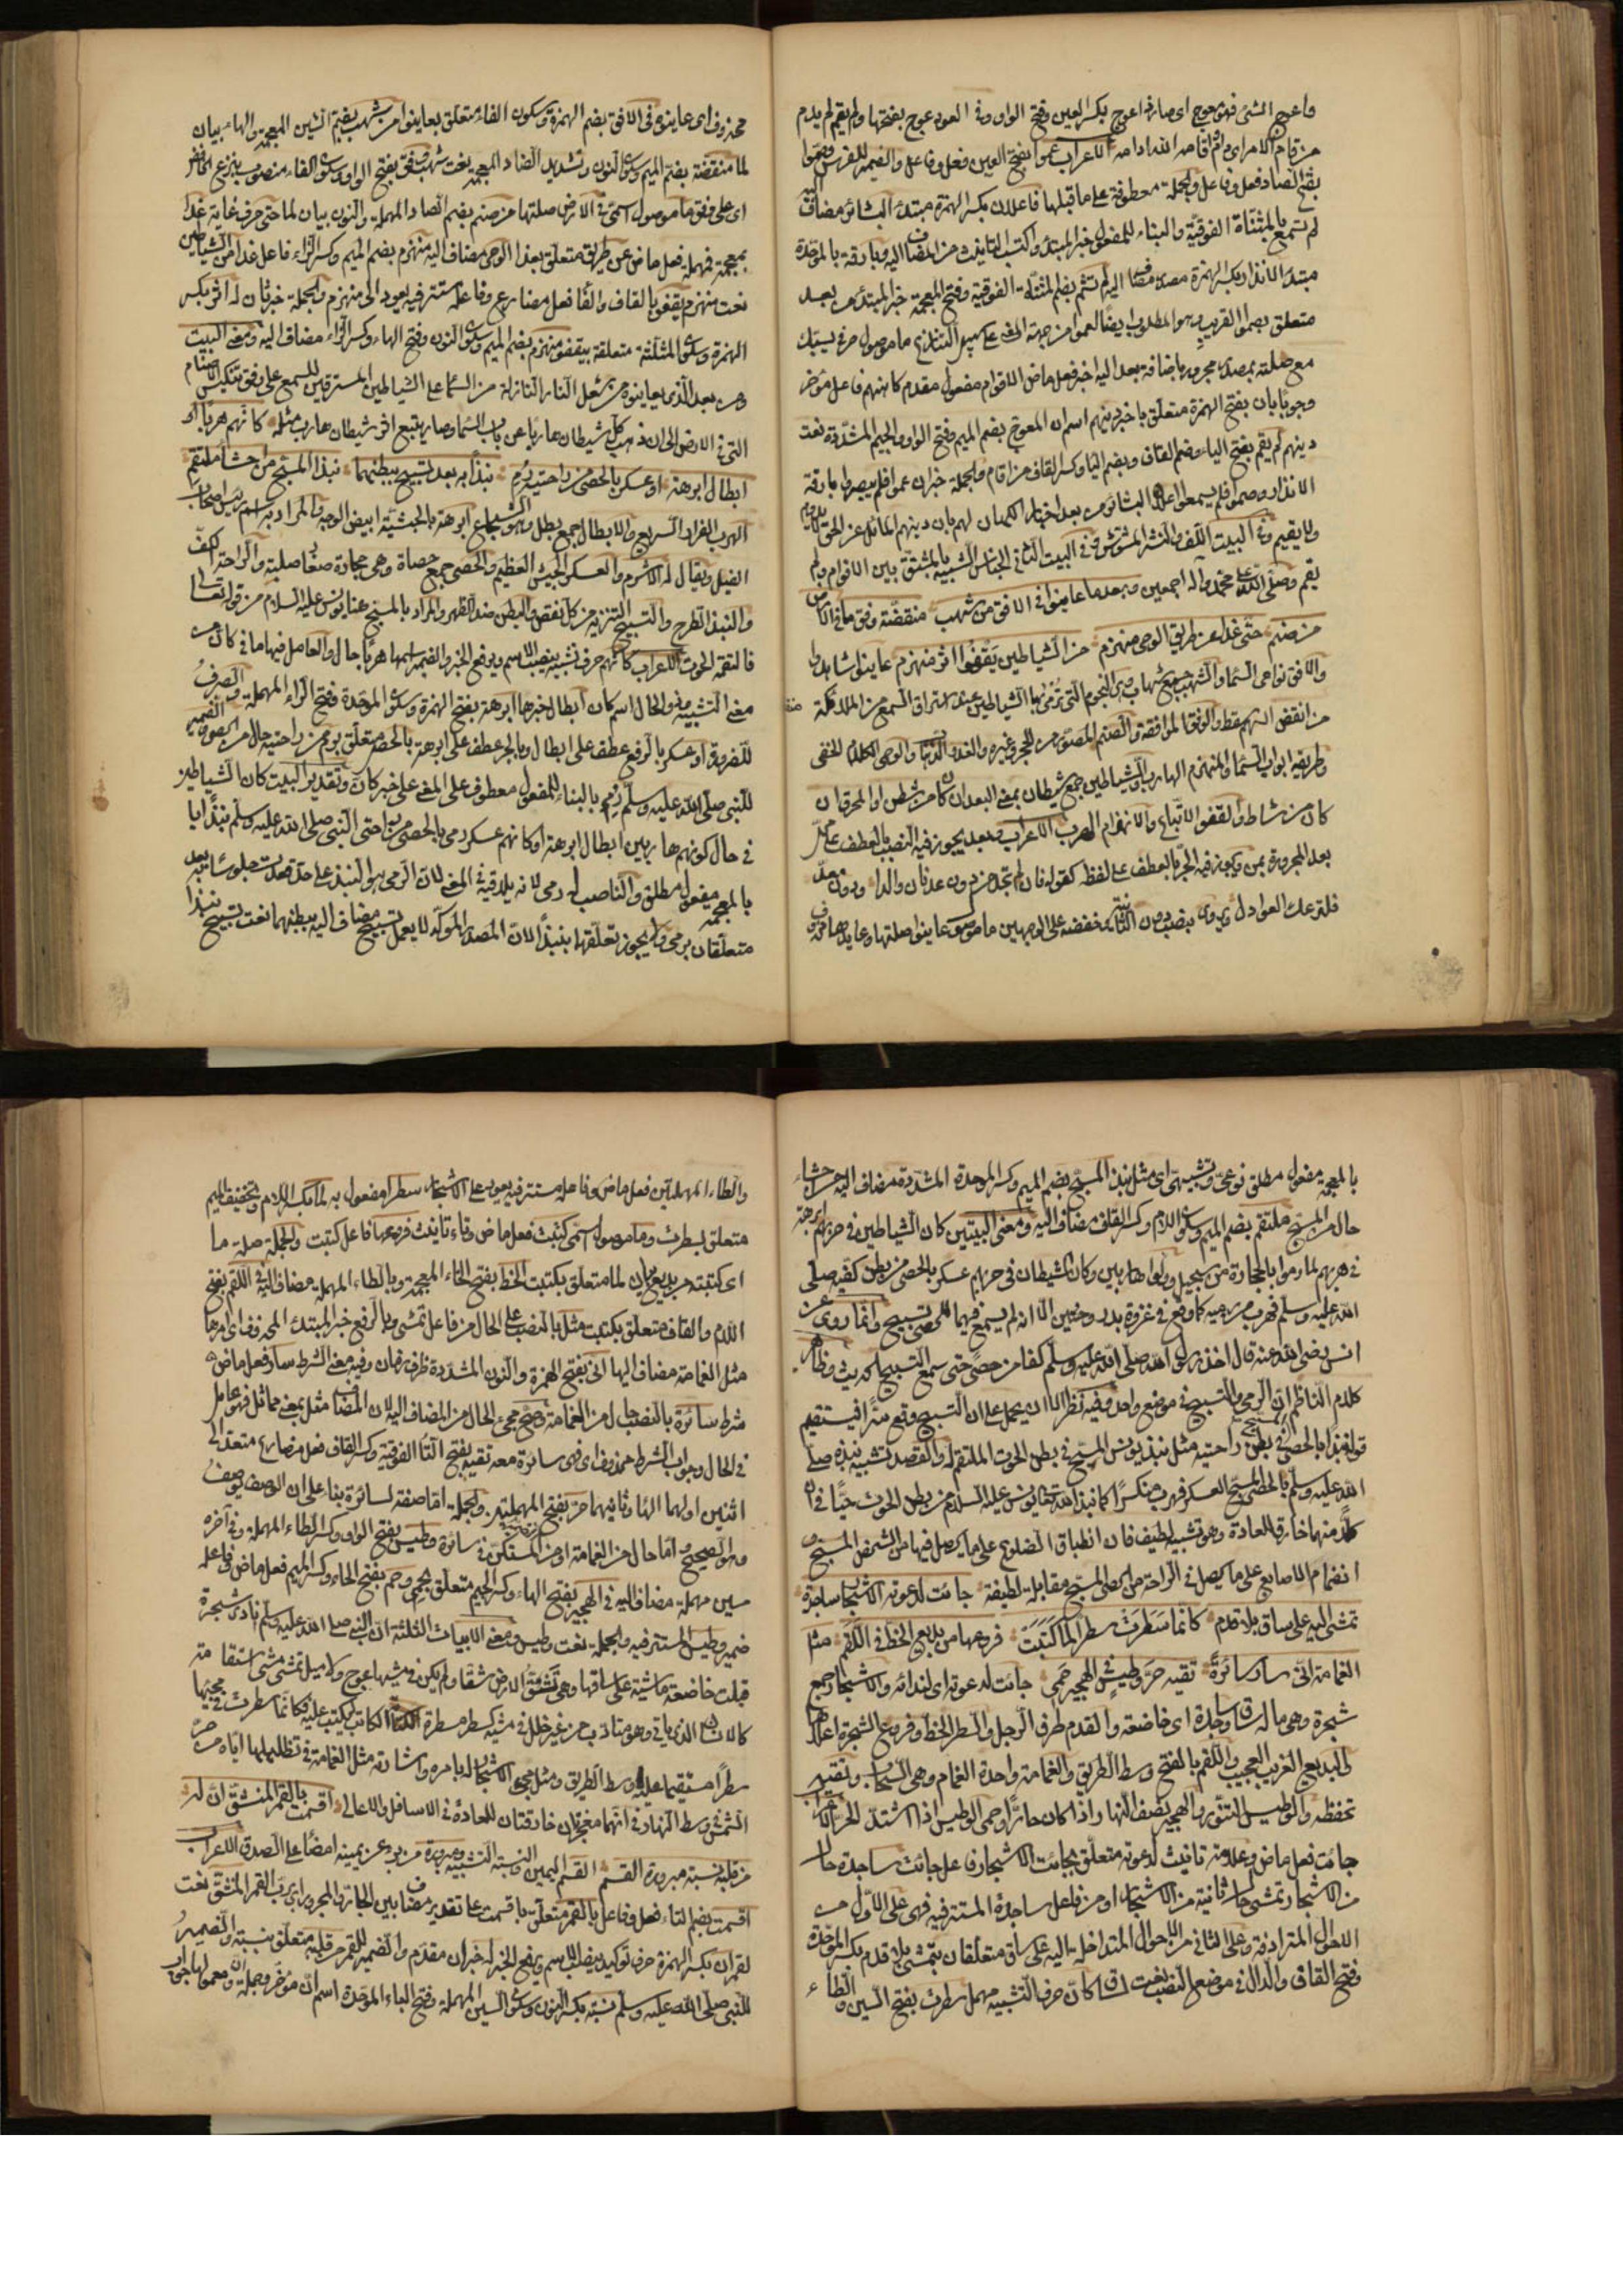 واعوج الشئ فهو معوج اى صار ذا عوج بكسر العين وفتح الواو وفى العود عوج بفتحها ولم يقم لم يدم
من قام الامر اى دام واقامه الله ادامه الاعراب عموا بفتح العين فعل وفاعل والضمير للفرس وصموا
بفتح الصاد فعل وفاعل والجملة معطوفة على ما قبلها فاعلان بكسر الهمزة مبتدأ البشائر مضاف اليه
لم تسمع بالمثناة الفوقية والبناء للمفعول خبر المبتدأ واكتسب التانيث من المضاف اليه وبارقة بالموحدة
مبتدأ الانذار بكسر الهمزة مصدر مضاف اليه لم تشم بضم المثناة الفوقية وفتح المعجمة خبر المبتدأ من بعد
متعلق بصموا لقربه وهو المطلوب ايضا لعموا من جهة المعنى على سبيل التنازع ما موصول حرفى يسبك
مع صلته بمصدر مجرور باضافة بعد اليه اخبر فعل ماض الاقوام مفعول مقدم كاهنهم فاعل مؤخر
وجوبا بان بفتح الهمزة متعلق باخبر دينهم اسم ان المعوج بضم الميم وفتح الواو والجيم المشددة نعت
دينهم لم يقم بفتح الياء وضم القاف وبضم اليا وكسر القاف من اقام والجملة خبر ان عموا فلم يبصروا بارقة
الانذار وصموا فلم يسمعوا اعلان البشائر من بعد اخبار الكهان لهم بان دينهم المائل عن الحق لا يدوم
ولا يقيم وفى البيت اللف والنشر المشوش وفى البيت الثانى الجناس الشبيه بالمشتق بين الاقوام ولم
يقم وصلى الله على محمد واله اجمعين وبعد ما عاينوا فى الافق من شهب منقضة وفق ما فى الارض
من صنم حتى غدا عن طريق الوحى منهزم من الشياطين يقفوا اثر منهزم عاينوا شاهدوا
والافق نواحى السما والشهب جمع شهاب وهى النجوم التى ترمى بها الشياطين عند استراق السمع من الملائكة
من انقض السهم سقط والوفق الموافقة والصنم المصور من الحجر وغيره والغدو الذهاب والوحى الكلام الخفى
وطريقه ابواب السما والمنهزم الهارب والشياطين جمع شيطان بمعنى البعد ان كان من شطن او المحرق ان
كان من شاط والقفو الاتباع والانهزام الهرب الاعراب وبعد يجوز فيه النصب بالعطف على محل
بعد المجرورة بمن ويجوز فيه الجر بالعطف على لفظه كقوله فان لم تجد من دون عدنان والدا ودون معد
فلتزعك العواذل روى بنصب دون الثانية وخفضه على الوجهين ما موصول عاينوا صلتها وعايدها محذوف
محذوف اى عاينوه فى الافق بضم الهمزة وسكون الفاء متعلق بعاينوا من شهب بضم الشين المعجمة والهاء بيان
لما منقضة بضم الميم وسكون النون وتشديد الضاد المعجمة نعت شهب وفق بفتح الواو وسكون الفاء منصوب بنزع الخافض
اى على وفق ما موصول اسمى فى الارض صلتها من صنم بضم الصاد المهملة والنون بيان لما حتى حرف غاية غدا
بمعجمة فمهملة فعل ماض عن طريق متعلق بغدا الوحى مضاف اليه منهزم بضم الميم وكسر الزاء فاعل غدا من الشياطين
نعت منهزم يقفو بالقاف والفا فعل مضارع وفاعله مستتر فيه يعود الى منهزم والجملة خبر ثان له اثر بكسر
الهمزة وسكون المثلثة متعلقة بيقفو منهزم بضم الميم وسكون النون وفتح الهاء وكسر الزاء مضاف اليه ومعنى البيت
ومن بعد الذى عاينوه من شعل النار النازلة من السما على الشياطين المسترقين للسمع على وفق تنكيس الاصنام
التى فى الارض الى ان ذهب كل شيطان هاربا عن باب السما وصار يتبع اثر شيطان هارب مثله كانهم هربا او
ابطال ابرهة او عسكر بالحصى من راحتيه رمى نبذا به بعد تسبيح ببطنهما نبذ المسبح من احشا ملتقم
الهرب الفرار السريع والابطال جمع بطل وهو الشجاع ابرهة بالحبشية ابيض الوجه والمراد به اسم رئيس اصحاب
الفيل ويقال له الاشرم والعسكر الجيش العظيم والحصى جمع حصاة وهى حجارة صغار صلبة والراحة الكف
والنبذ الطرح والتسبيح التنزيه من كل نقص والبطن ضد الظهر والمراد بالمسبح هنا يونس عليه السلام من قوله تعالى
فالتقمه الحوت الاعراب كانهم حرف تشبيه ينصب الاسم ويرفع الخبر والضمير اسمها هربا حال والعامل فيها ما فى كان من
معنى التشبيه وذو الحال اسم كان ابطال خبرها ابرهة بفتح الهمزة وسكون الموحدة وفتح الراء المهملة والصرف
للضرورة او عسكر بالرفع عطف على ابطال وبالجر عطف على ابرهة بالحصى متعلق برمى من راحتيه حال من الحصى والضمير
للنبى صلى الله عليه وسلم رمى بالبناء للمفعول معطوف على المعنى على خبر كان وتقدير البيت كان الشياطين
فى حال كونهم هاربين ابطال ابرهة او كانهم عسكر رمى بالحصى من راحتى النبى صلى الله عليه وسلم نبذا
بالمعجمة مفعول مطلق والناصب له رمى لانه يلاقيه فى المعنى لان الرمى هو النبذ على حد قعدت جلوسا به بعد
متعلقان برمى ولا يجوز تعلقهما بنبذا لان المصدر المؤكد لا يعمل تسبيح مضاف اليه ببطنهما نعت تسبيح نبذا
بالمعجمة مفعول مطلق نوعى وتشبيهى اى مثل نبذ المسبح بضم الميم وكسر الموحدة المشددة مضاف اليه من احشاء
حال من المسبح ملتقم بضم الميم وسكون اللام وكسر القاف مضاف اليه ومعنى البيتين كان الشياطين فى هربهم ابرهة
فى هربهم لما رموا بالحجارة من سجيل وولوا هاربين وكان الشيطان فى هربهم عسكر بالحصى من بطن كفيه صلى
الله عليه وسلم فهرب من رميه كما وقع فى غزوة بدر وحنين الا انه لم يسمع فيهما للحصى تسبيح وانما روى عن
انس رضى الله عنه قال اخذ رسول الله صلى الله عليه وسلم كفا من حصى حتى سمع التسبيح الحديث وظاهر
كلام الناظم ان الرمى والتسبيح فى موضع واحد وفيه نظر الا ان يحمل على ان التسبيح وقع سرا فيستقيم
قوله نبذا بالحصى المسبح فى بطن راحتيه مثل نبذ يونس المسبح فى بطن الحوت الملتقم له والقصد تشبيه نبذه صلى
الله عليه وسلم بالحصى المسبح العسكر فهرب منكسرا كما نبذ الله تعالى يونس عليه السلام من بطن الحوت حيا فى ان
كلا منهما خارق للعادة وهو تشبيه لطيف فان انطباق الضلوع على ما يحصل فيها من الشخص المسبح و
انضمام الاصابع على ما يحصل فى الراحة من الحصى المسبح مقابلة لطيفة جائت لدعوته الاشجار ساجدة
تمشى اليه على ساق بلا قدم كانما سطرت سطرا لما كتبت فروعها من بديع الخط فى اللقم مثل
الغمامة انى سار سائرة تقيه حر وطيس فى الهجير حمى جائت له دعوته اى لندائه والاشجار جمع
شجرة وهى ما له ساق وساجدة اى خاضعة والقدم طرف الرجل والسطر الخط وفروع الشجرة اعلاها
والبديع الغريب العجيب واللقم بالفتح وسط الطريق والغمامة واحدة الغمام وهى السحاب وتقيه
تحفظه والوطيس التنور والهجير نصف النهار اذا كان حارا وحمى الوطيس اذا اشتد الحر الاعراب
جائت فعل ماض وعلامة تانيث لدعوته متعلق بجائت الاشجار فاعل جائت ساجدة حال
من الاشجار تمشى حال ثانية من الاشجار او من فاعل ساجدة المستتر فيه فهى على الاول من
الاحوال المترادفة وعلى الثانى من الاحوال المتداخلة اليه على ساق متعلقان بتمشى بلا قدم بكسر الموحدة
وفتح القاف والدال فى موضع النصب نعت ساق كان حرف التشبيه مهمل سطرت بفتح السين والطاء
والطاء المهملتين فعل ماض وفاعله مستتر فيه يعود على الاشجار سطرا مفعول به لما بكسر اللام وتخفيف الميم
متعلق بسطرت وما موصول اسمى كتبت فعل ماض وتاء تانيث فروعها فاعل كتبت والجملة صلة ما
اى كتبته من بديع بيان لما متعلق بكتبت الخط بفتح الخاء المعجمة وبالطاء المهملة مضاف اليه فى اللقم بفتح
اللام والقاف متعلق بكتبت مثل بالنصب على الحال من فاعل تمشى وبالرفع خبر المبتدأ المحذوف اى امرها
مثل الغمامة مضاف اليها انى بفتح الهمزة والنون المشددة ظرف مكان وفيه معنى الشرط سار فعل ماض
شرط سائرة بالنصب حال من الغمامة وصح مجئ الحال من المضاف اليه لان المضاف مثل بمعنى مماثل فهو عامل
فى الحال وجواب الشرط محذوف اى فهى سائرة معه تقيه بفتح التا الفوقية وكسر القاف فعل مضارع متعد الى
اثنين اولهما الها وثانيهما حر بفتح المهملتين والجملة اما صفة لسائرة بناء على ان الوصف يوصف
وهو الصحيح واما حال من الغمامة او من المستكن فى سائرة وطيس بفتح الواو وكسر الطاء المهملة وفى آخره
سين مهملة مضاف اليه فى الهجير بفتح الهاء وكسر الجيم متعلق بحمى وحمى بفتح الحاء وكسر الميم فعل ماض وفاعله
ضمير وطيس المستتر فيه والجملة نعت وطيس ومعنى الابيات الثلثة ان النبى صلى الله عليه وسلم نادى شجرة
قبلت خاضعة ماشية على ساقها وهى تشق الارض شقا ولم يكن فى مشيها عوج ولا ميل تمشى مشى استقامة
كالانسان الذى ياتى وهو متادب من غير خلل فى مشيه كسطر مسطرة الكاتب ليكتب عليه فكانما سطرت فى مجيئها
سطرا مستقيما عليه وسط الطريق ومثل مجئ الاشجار له بامره واشارته مثل الغمامة فى تظليلها اياه من حر
الشمس فى وسط النهار فى انهما معجزتان خارقتان للعادة فى الاسافل والاعالى اقسمت بالقمر المنشق ان له
من قلبه نسبة مبرورة القسم القسم اليمين والنسبة التشبيه ومبرورة من بر عن يمينه امضا على الصدق الاعراب
اقسمت بضم التاء فعل وفاعل بالقمر متعلق باقسمت على تقدير مضاف بين الجار والمجرور اى برب القمر المنشق نعت
لقمر ان بكسر الهمزة حرف توكيد ينصب الاسم ويرفع الخبر له خبر ان مقدم والضمير للقمر من قلبه متعلق بنسبة والضمير
للنبى صلى الله عليه وسلم نسبة بكسر النون وسكون السين المهملة وفتح الباء الموحدة اسم ان مؤخر وجملة ان ومعموليها جواب